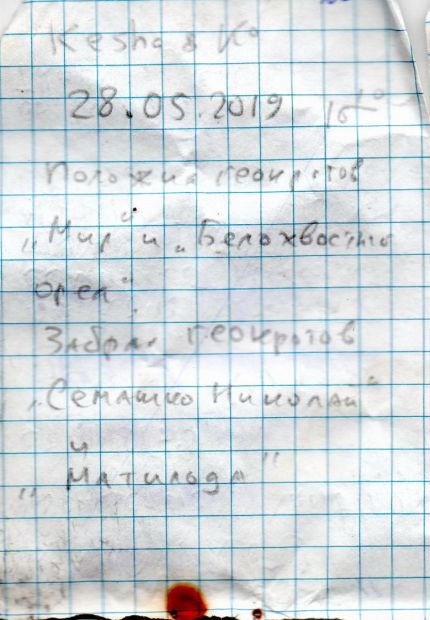 Kesha & Ko
28.05.2019 16¹⁰
Положил геокротов
„Мир“ и „Белохвостый
орел“.
Забрал геокротов
„Семашко Николай“
и
„Матильда“